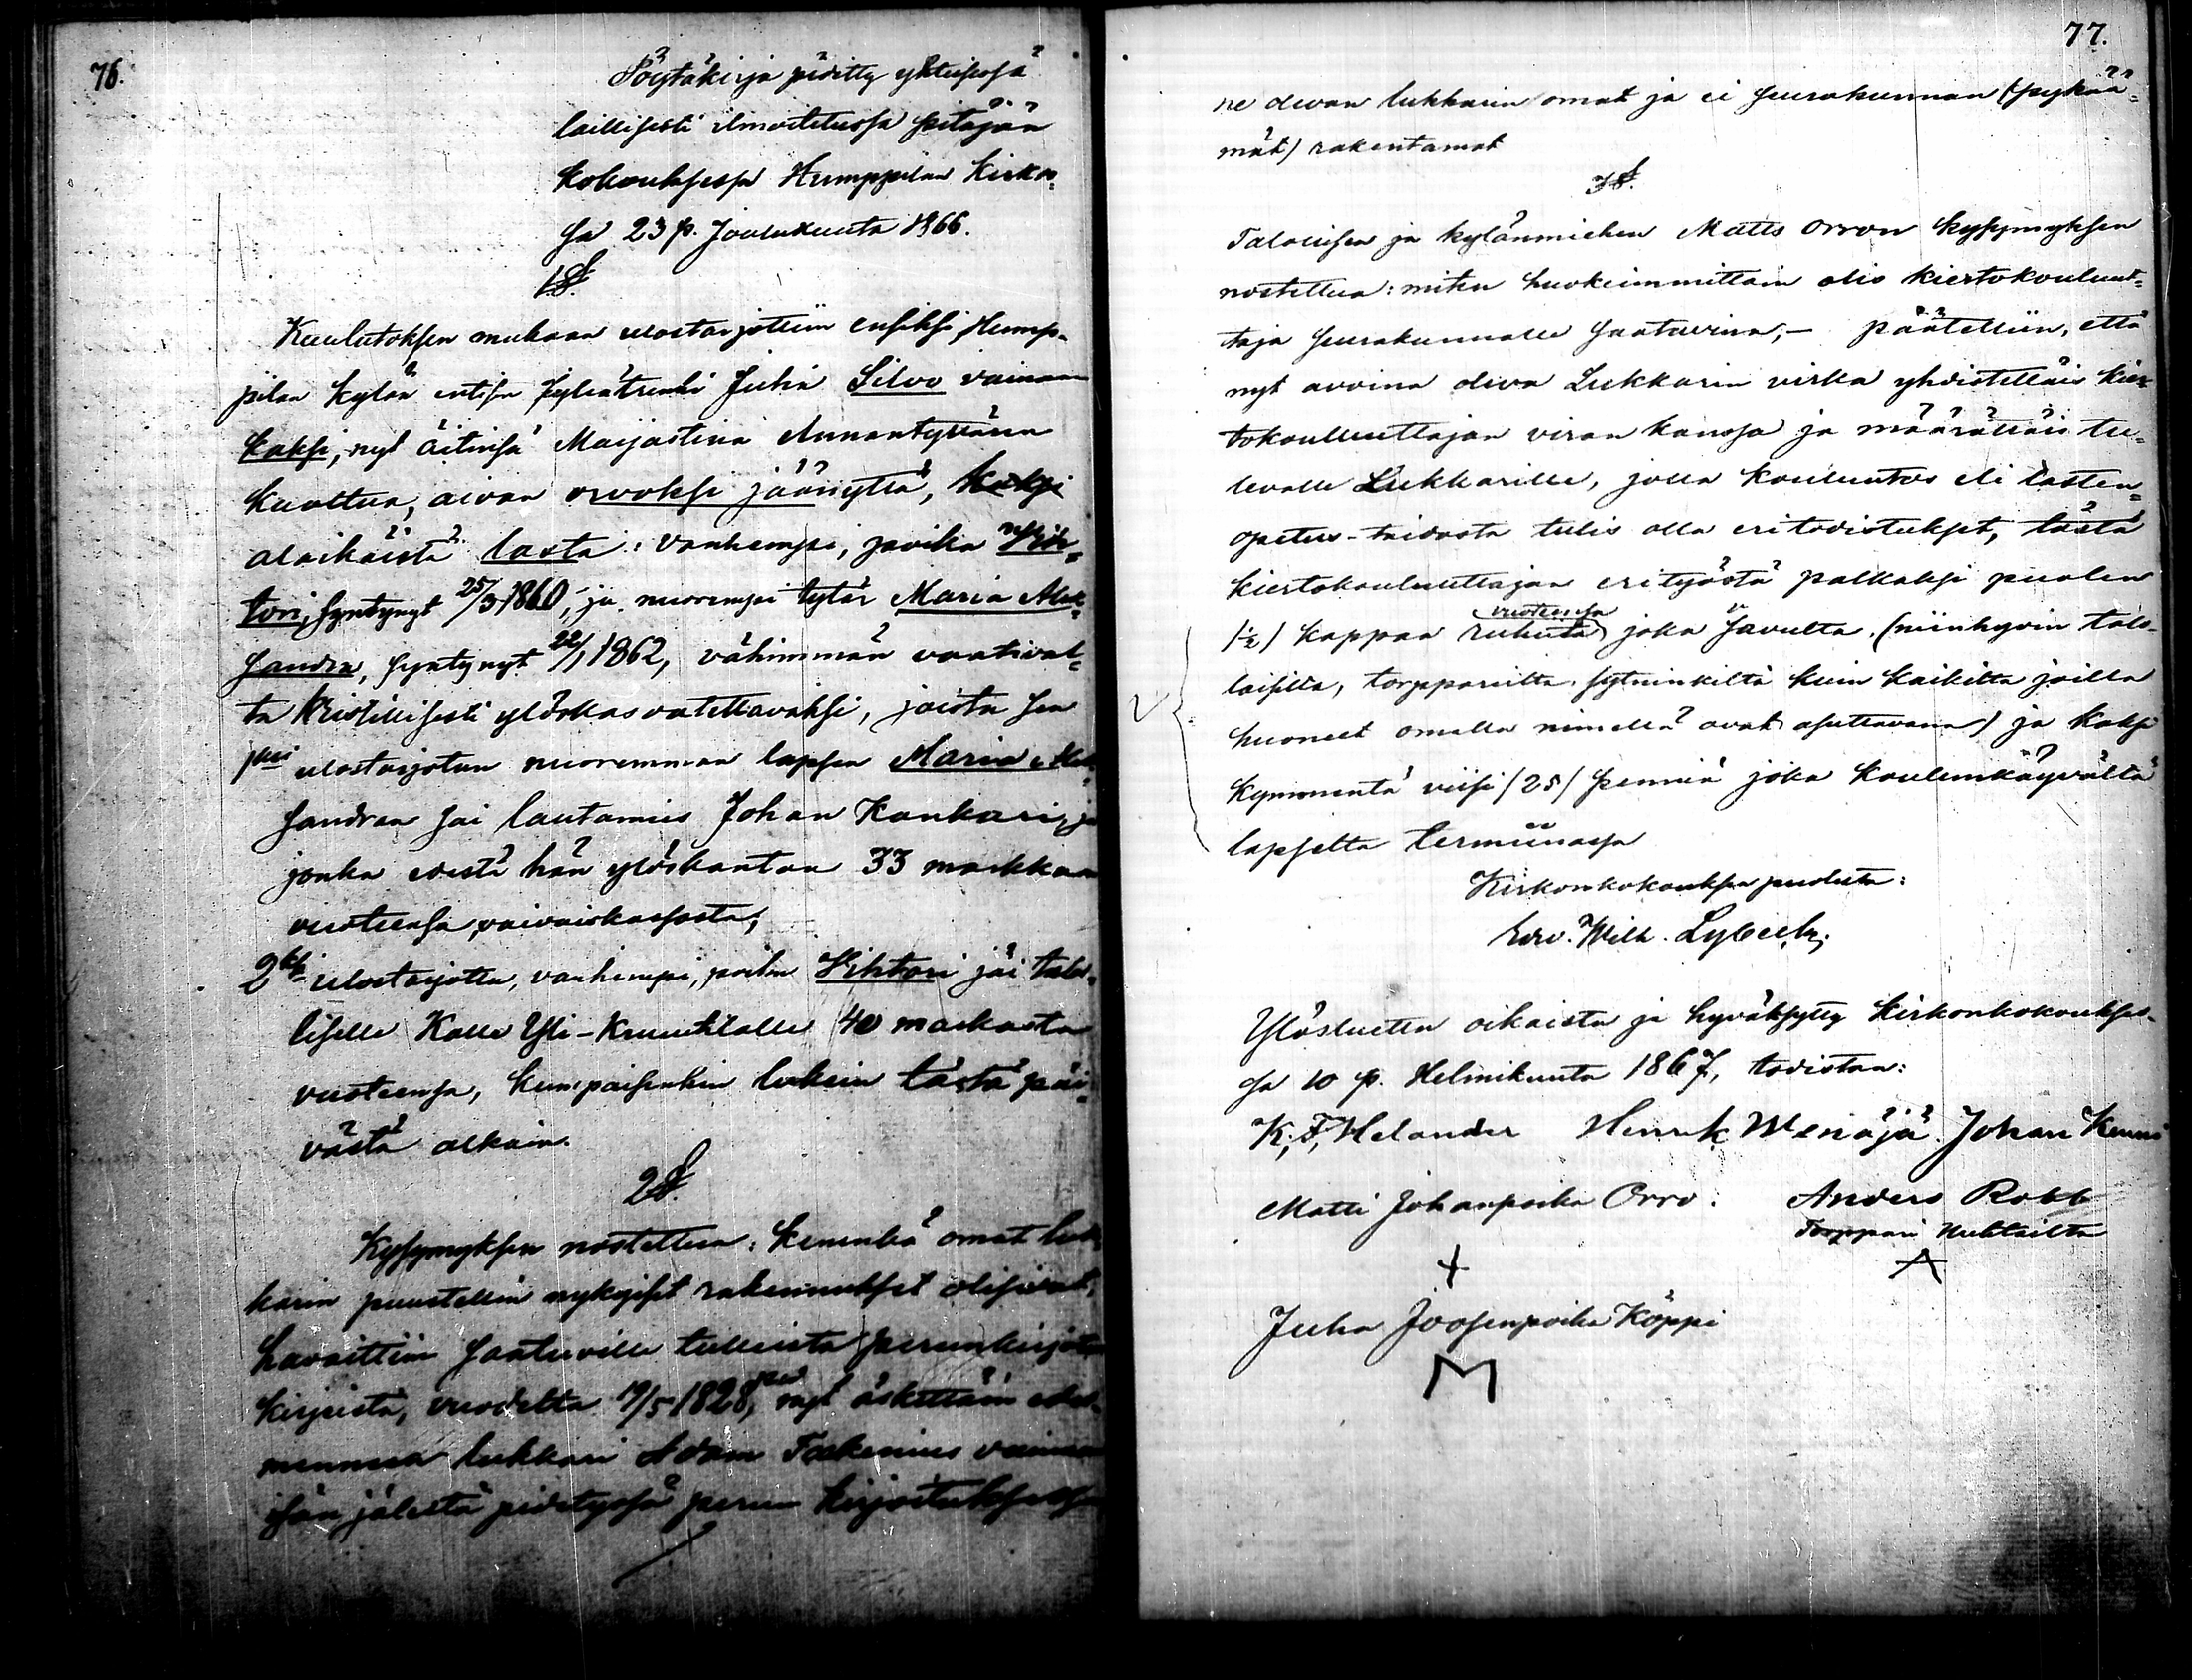 76.
Pöytäkirja pidetty yhteisessä
laillisesti ilmoitetussa pitäjän
kokouksessa Humppilan Kirkos-
sa 23 p. Joulukuuta 1866.
1 §.
Kuulutoksen mukaan ulostarjottiin ensiksi, Hump-
pilan kylän entisen Juha Silvo vainaan
kaksi, nyt äitinsä Maijastina Annantyttären
kuoltua, aivan orvoksi jäänyttä, kaksi
alaikäistä lasta: vanhempi, poika Vih-
tori, syntynyt 25/3 1860, ja nuorempi tytär Maria Alek-
sandra, syntynyt 22/1 1862, vähimmän vaatival-
ta Kristillisesti ylöskasvatettavaksi, joista sen
1ksi ulostarjotun nuoremman lapsen Maria Alek-
sandran sai lautamies Johan Kankari,
jonka edestä hän ylöskantaa 33 markkaa
vuoteensa vaivaiskassasta;
2ksi ulostarjottu, vanhempi, poika Vihtori jäi talol-
liselle Kalle Yli-Kruutilalle 40 markasta
vuoteensa, kumpaisenkin lukein tästä päi-
västä alkain.
2 §.
Kysymyksen nostettua: kenenkä omat luk-
karin puustellin nykyiset rakennukset olisivat,
havaittiin saatuville tulleista perunkirjoitus
kirjoista, vuodelta 19/5 1828, nyt äskettäin
mennessä lukkari Adam Takenius vainaan
isän jälestä pidetyssä perun kirjoituksessa
77.
ne olevan lukkarin omat ja ei seurakunnan (pykää-
mät) rakentamat
3 §.
Talollisen ja kylänmiehen Matts Orron kysymyksen
nostettua: miten huokeimmittain olis kiertokoulunt-
taja seurakunnalle saatavina, – päätettiin, että
nyt avoina oleva Lukkarin virka yhdistettäis kier-
tokouluuttajan viran kanssa ja määrättäis tu-
levalle Lukkarille, jolla kouluutos eli lasten-
opetus-taidosta tulis olla eri todistukset, tästä
kiertokouluuttajan eri työstä palkaksi puolen
vuoteensa
/½/ kappaa rukiita joka savulta, (niinhyvin talo-
laisilta, torppareilta kuin kaikilta joilla
huoneet omalla nimellä ovat asuttavana) ja kaksi
kymmentä viisi /25/ penniä joka koulunkäyvältä
lapselta terminassa
Kirkonkokouksen puolesta:
Edv. Wilh. Lybeck;
Ylösluettu oikaistu ja hyväksytty kirkonkokoukses-
sa 10 p. Helmikuuta 1867, todistaa:
K. F. Helander Henrik Wenäjä. Johan
Matti Johanpoika Orro. Anders Robb
Torppari Huhtailta
Juha Joosenpoika Köppi